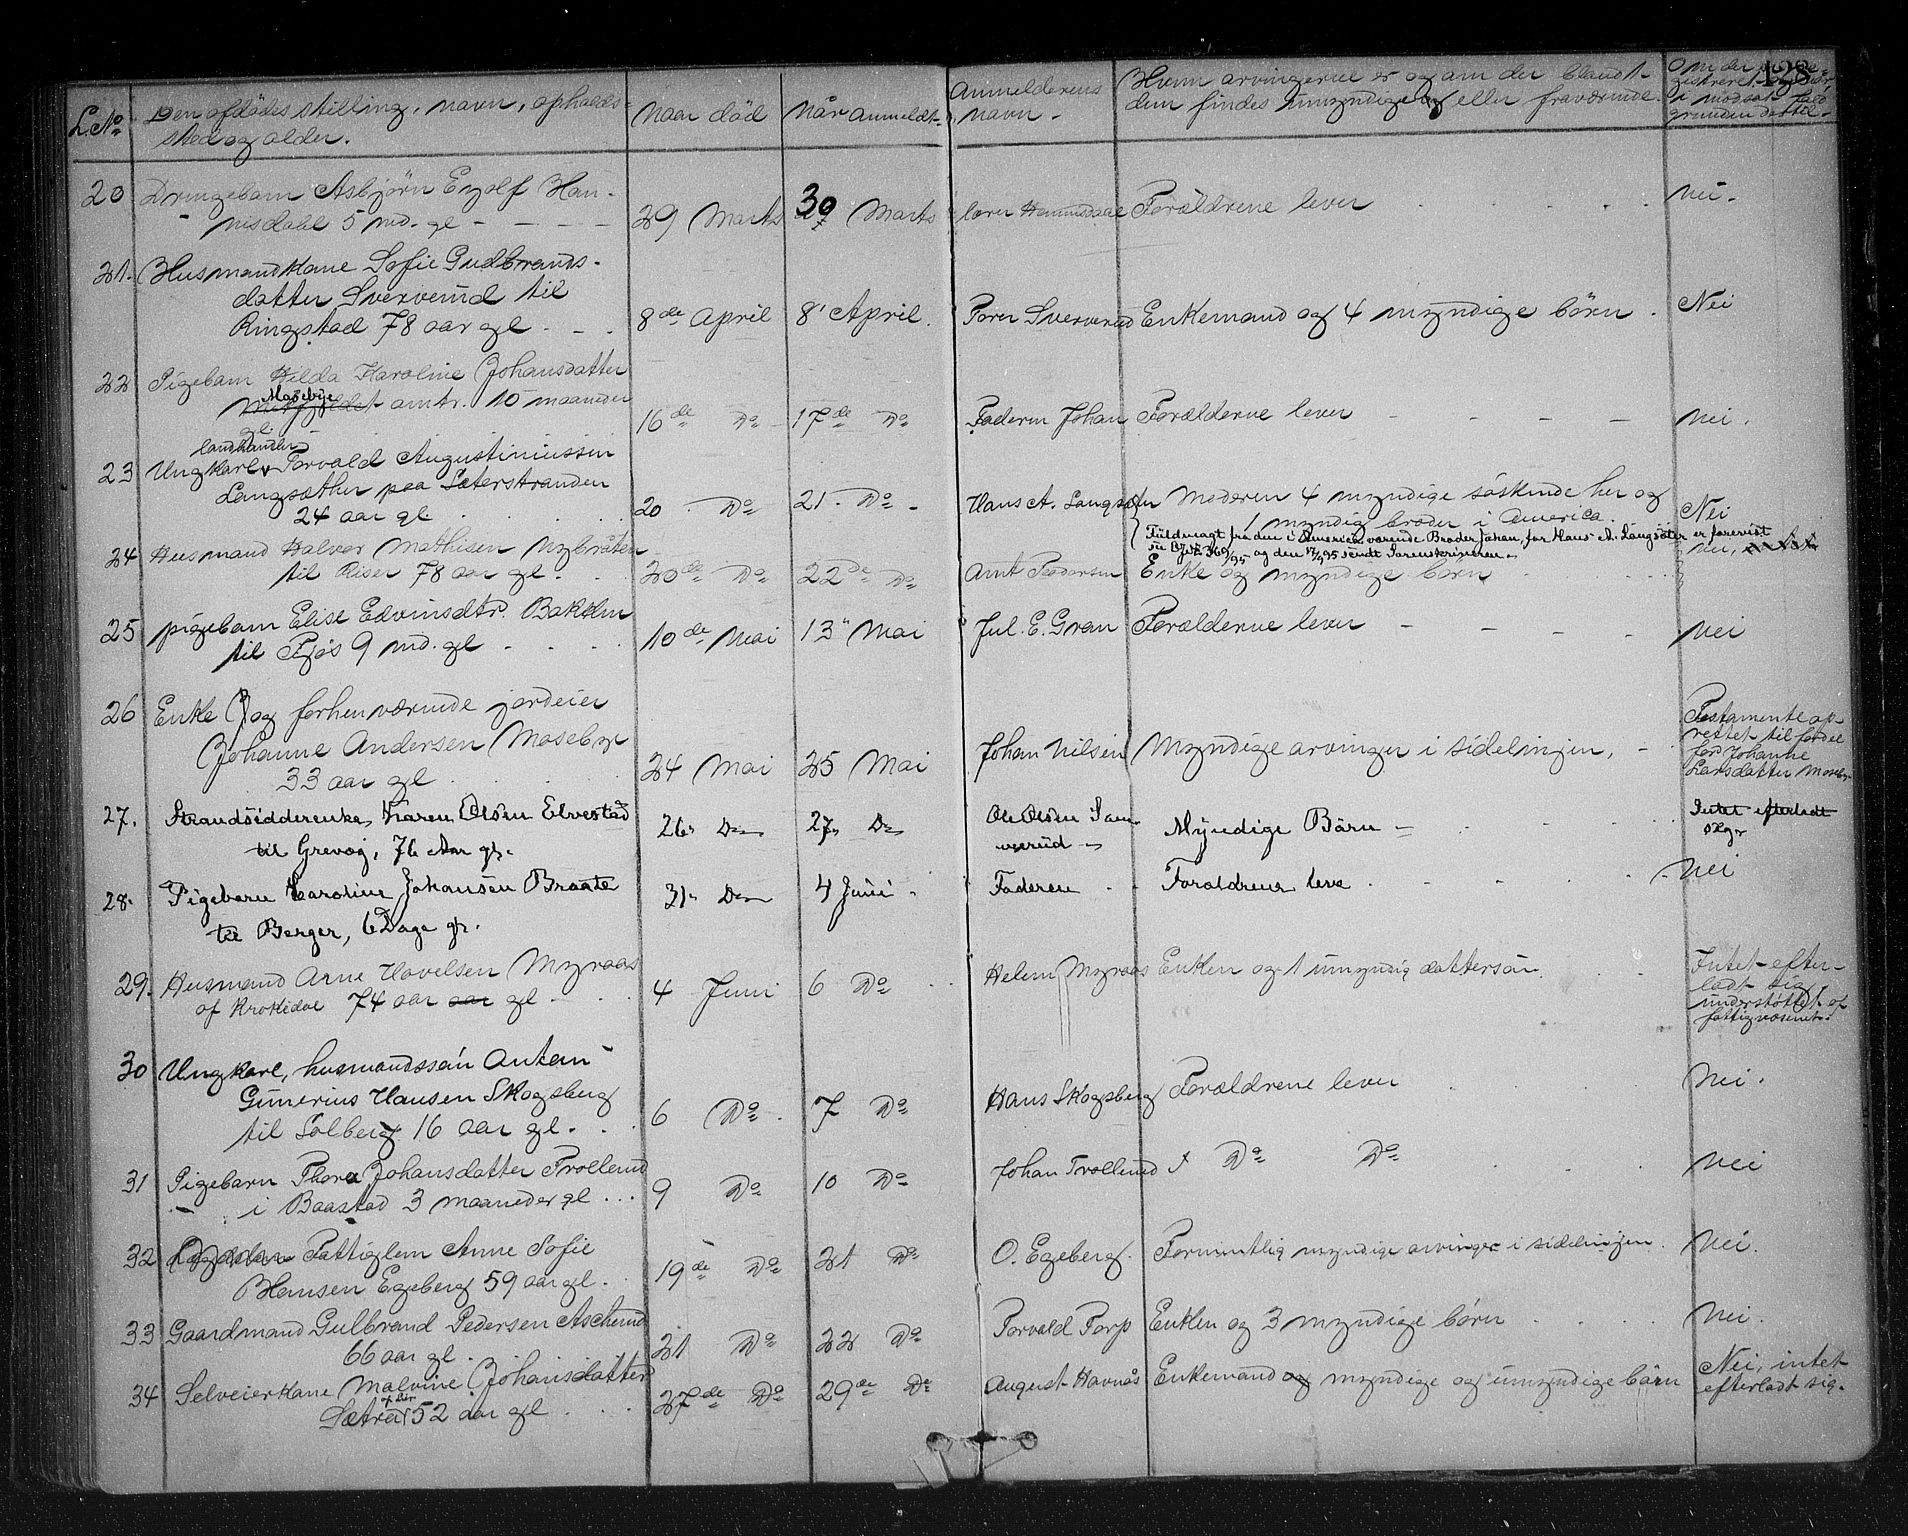 128
L. No
Den afdödes stilling, navn, opholds-
sted og alder.
Naar död
Når anmeldt
Anmelderens
navn.
Hvem arvingerne er og om der blandt
dem findes umyndige eller fraværende.
20 Drengebarn Asbjörn Eyolf Han-
nisdahl 5 md. gl 29 Marts 30 Marts Foræeldrene lever nei.
21. Husmandkone Sofie Gudbrands-
datter Sververud til
Ringstad 78 aar gl 8de April 8' April. Torn Sververud Enkemand og 4 myndige börn. Nei
22 Pigebarn Hilda Karoline Johansdatter
Mosebye
amtr. 10 maaneder
gl. 16de Do 17de Do Faderen Johan Forælderne lever nei.
landhandler
23 Ungkarl Torvald Augustiniussen
Langsæther paa Sæterstranden
24 aar gl. 20 Do 21. Do Hans A. Langsæter Moderen 4 myndige söskende her og
1 myndig broder i America. Nei
Fuldmagt fra den i Amerika værende Broder Johan, for Hans A. Langsöter er forevist
og den 17/9 95 sendt Sorenskriveren
24 Husmand Halvor Mathisen Nybråten
til Riser 78 aar gl. 20de Do 22de Do Amt Pedersen Enke og myndige börn nei,
25 pigebarn Elise Edvinsdtr. Bakken
til Fjös 9 md. gl 10de Mai 13" Mai Jul. E. Gran Forælderne lever nei
26 Enke og forhenværende jordeier
Johanne Andersen Mosebye
33 aar gl 24 Mai 25 Mai Johan Nilsen Myndige arvinger i sidelinjen.
Testamente op-
rettet til fordel
for Johanne
Larsdatter Moseby
27. Strandsidderenke Karen Olsen Elvestad
til Grevog, 76 Aar gl. 26 Do 27 Do Ole Olsen Sam-
merud Myndige Börn Intet efterladt
sig
28. Pigebarn Karoline Johansen Braate
til Berger, 6 Dage gl. 31 Do 4 Juni Faderen Foraldrene leve nei
29. Husmand Arne Hovelsen Myraas
af Krokedal 74 aar aar gl 4 Juni 6 Do Helene Myraas Enken og 1 umyndig dattersön.
Intet efter-
ladt sig
understöttet af
fattigvæsenet.
30 Ungkarl, husmandssön Anton
Gunerius Hansen Skogsberg
til Solberg 16 aar gl. 6 Do 7 Do Hans Skogsberg Forældrene lever nei.
31 Pigebarn Thora Johansdatter Trollerud
i Baastad 3 maaneder gl 9 Do 10 Do Johan Trollerud Do Do nei
32 Fattiglem Anne Sofie
Hansen Egeberg 59 aar gl. 19de Do 21 Do O. Egeberg. Formentlig myndige arvinger i sidelinjen. nei.
33 Gaardmand Gulbrand Pedersen Ascherud
66 aar gl. 21 Do 22 Do Torvald Torp Enken og 3 myndige börn nei.
34 Selveierkone Malvine Johansdatter
Sætra 52 aar gl 27de Do 29de Do August Havnås Enkemand og myndige og umyndige börn Nei, intet
efterladt sig.